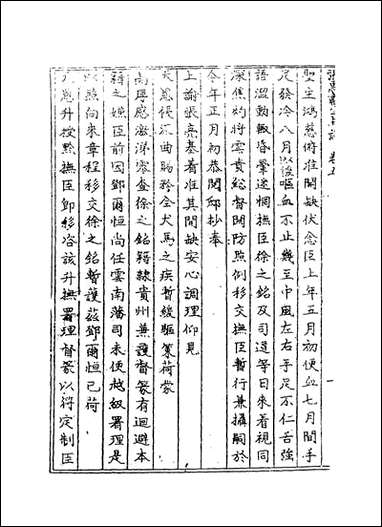 張惠肅公年譜 卷五
聖主鴻慈俯准開缺伏念臣上年五月初便血七月間手
足發冷八月以後嘔血不止幾至中風左右手足不仁舌強
語澀動輒昏暈迷惘撫臣徐之銘及司道等日來看視同
深焦灼將雲貴總督關防照例移交撫臣暫行兼攝嗣於
今年正月初恭閱邸抄奉
上諭張亮基着准其開缺安心調理仰見
天恩優渥曲賜矜全犬馬之疾暫緩驅策荷蒙
高厚感激涕零查徐之銘籍隸貴州兼護督篆有迴避本
籍之嫌臣前因鄧爾恒尚任雲南藩司未便越級署理是
以照向來章程移交徐之銘暫護茲鄧爾恒已荷
天恩升授黔撫臣即移咨該升撫署理督篆以符定制臣